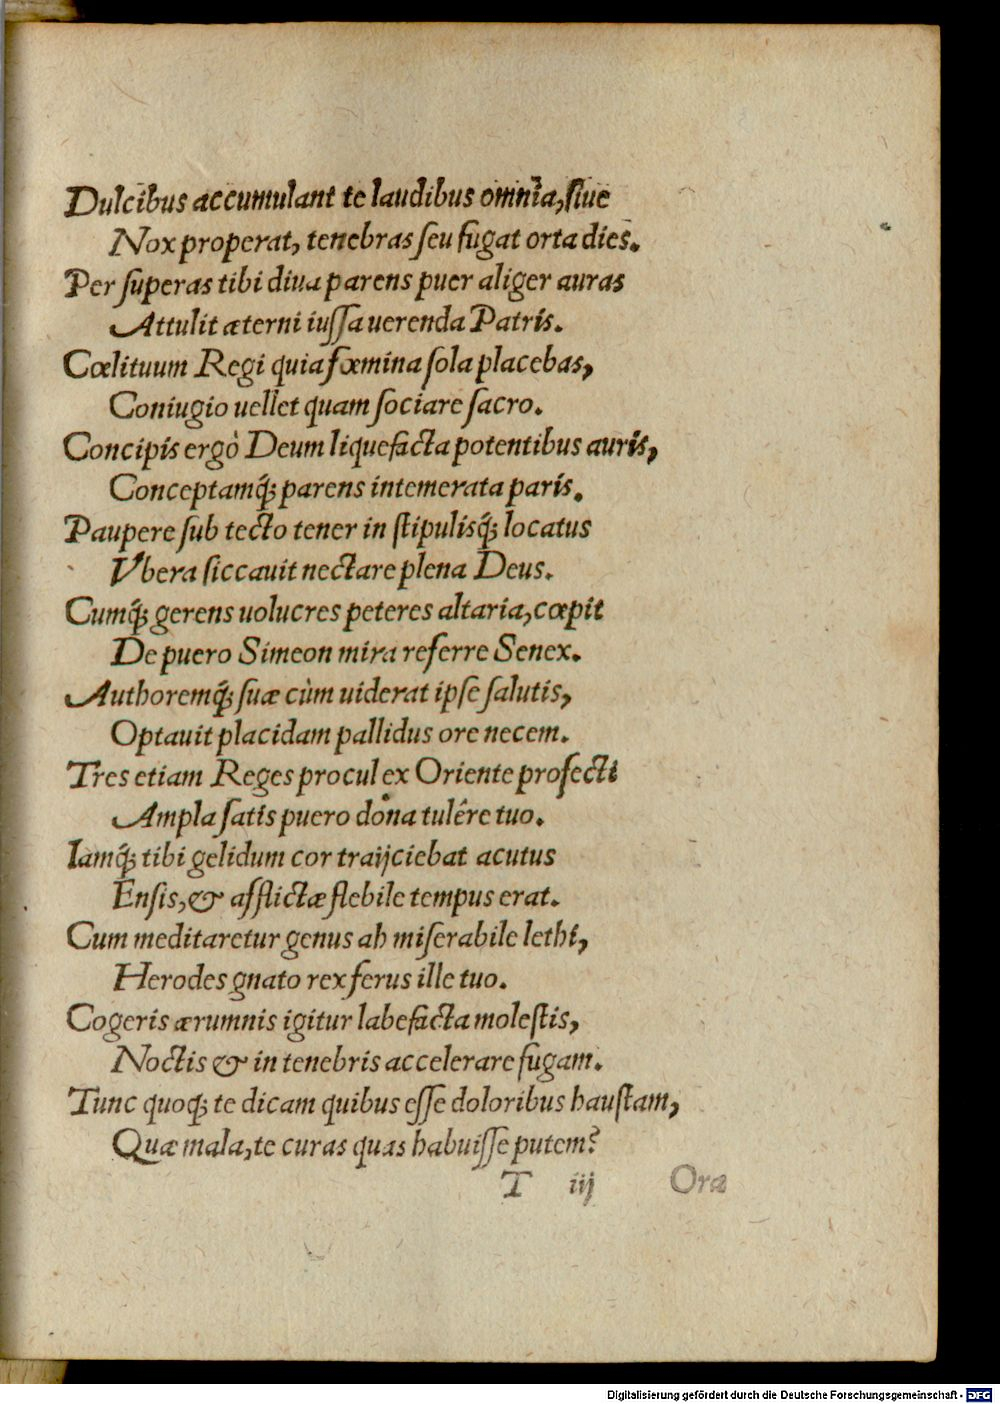 Dulcibus accumulant te laudibus omnia, ſiue
Nox properat, tenebras ſeu fugat orta dies.
Per ſuperas tibi diua parens puer aliger auras
Attulit æterni iuſſa uerenda Patris.
Cœlituum Regi quia fœmina ſola placebas,
Coniugio uellet quam ſociare ſacro.
Concipis ergò Deum liquefacta potentibus auris,
Conceptamq́; parens intemerata paris.
Paupere ſub tecto tener in ſtipulisq́; locatus
Vbera ſiccauit nectare plena Deus.
Cumq́; gerens uolucres peteres altaria, cœpit
De puero Simeon mira referre Senex.
Authoremq́; ſuæ cùm uiderat ipſe ſalutis,
Optauit placidam pallidus ore necem.
Tres etiam Reges procul ex Oriente profecti
Ampla ſatis puero dona tulêre tuo.
Iamq́; tibi gelidum cor traijciebat acutus
Enſis, & afflictæ flebile tempus erat.
Cum meditaretur genus ah miſerabile lethi,
Herodes gnato rex ferus ille tuo.
Cogeris ærumnis igitur labefacta moleſtis,
Noctis & in tenebris accelerare fugam.
Tunc quoq; te dicam quibus eſſe doloribus hauſtam,
Quæ mala, te curas quas habuiſſe putem?
T iij Oræ
Digitalisierung gefördert durch die Deutsche Forschungsgemeinschaft - DFG